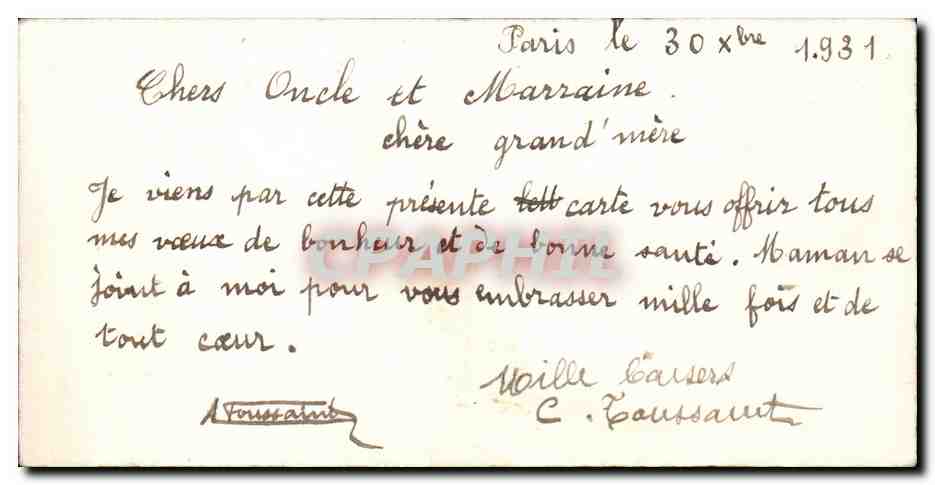 Paris le 30 Xbre 1.931.
Chers Oncle et Marraine.
chère grand'mère
Je viens par cette présente lett carte vous offrir tous
mes vœux de bonheur et de bonne santé. Maman se
joint à moi pour vous embrasser mille fois et de
tout cœur.
Mille Baisers
Toussaint
C. Toussaint
CPAPHIL